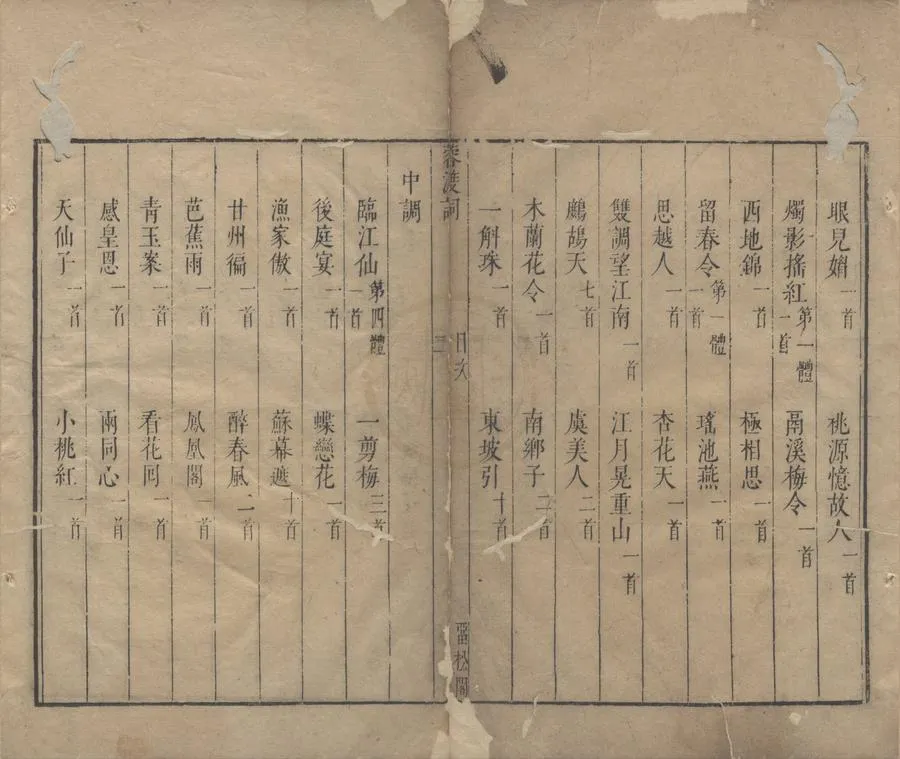 眼兒媚一首 桃源憶故人一首
燭影搖紅第一體一首 鬲溪梅令一首
西地錦一首 極相思一首
留春令第一體一首 瑤池燕一首
思越人一首 杏花天一首
雙調望江南一首 江月晃重山一首
鷓鴣天七首 虞美人二首
木蘭花令一首 南鄉子二首
一斛珠一首 東坡引十首
蓉渡詞 目次 三 留松閣
中調
臨江仙第四體一首 一剪梅三首
後庭宴一首 蝶戀花一首
漁家傲一首 蘇幕遮十首
甘州徧一首 醉春風一首
芭蕉雨一首 鳳凰閣一首
青玉案一首 看花囘一首
感皇恩一首 兩同心一首
天仙子一首 小桃紅一首